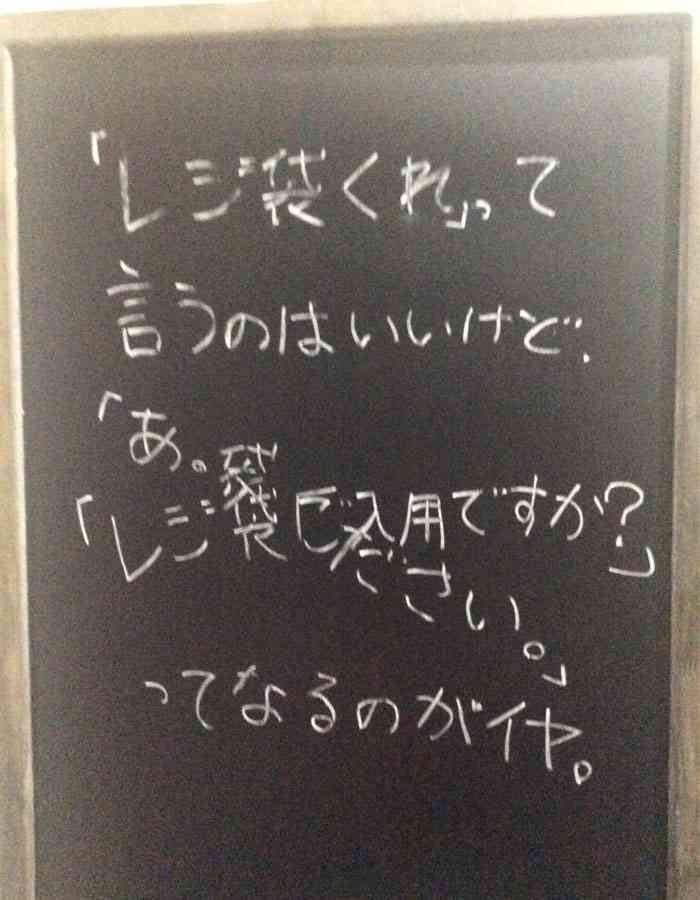 「レジ袋くれ」って
言うのはいいけど、
「あ。袋ください。」
「レジ袋ご入用ですか?」
ってなるのがイヤ。